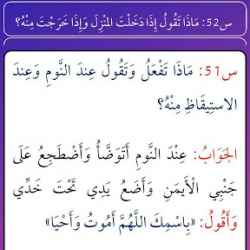 س52: مَاذَا تَقُولُ إِذَا دَخَلْتَ المَنْزِلَ وَإِذَا خَرَجْتَ مِنْهُ؟
س51: مَاذَا تَفْعَلُ وَتَقُولُ عِندَ النَّومِ وَعِندَ
الاستِيقَاظِ مِنْهُ؟
الجَوَابُ: عِنْدَ النَّومِ أَتَوَضَّأُ وَأَضْطَجِعُ عَلَى
جَنْبِي الْأَيمَنِ وَأَضَعُ يَدِي تَحْتَ خَدِّي
وَأَقُولُ: «بِاسْمِكَ اللَّهُمَّ أَمُوتُ وَأَحْيَا»